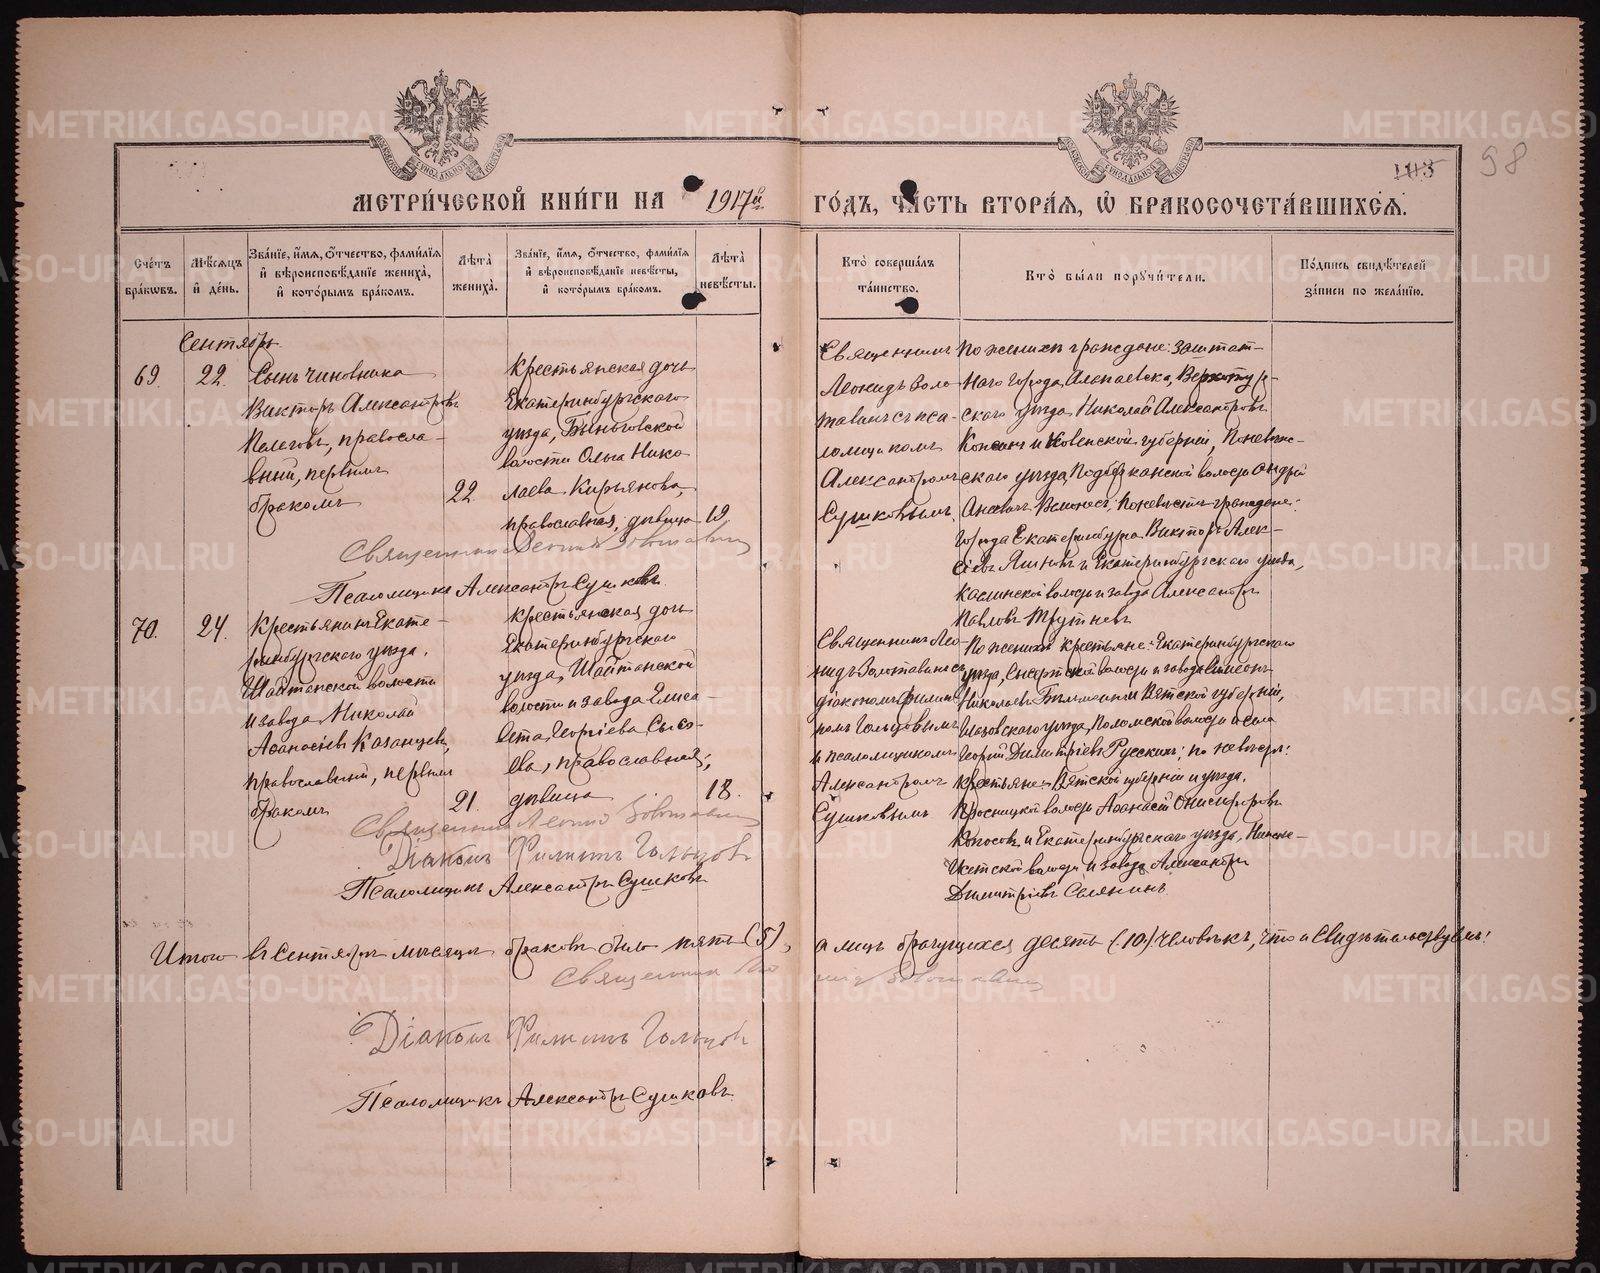 103
98
МЕТРИЧЕСКОЙ КНИГИ НА 1917й ГОДЪ, ЧАСТЬ ВТОРАЯ, Ѡ БРАКОСОЧЕТАВШИХСЯ.
Счетъ браковъ.
Мѣсяцъ и день.
Званіе, имя, отчество, фамилія и вѣроисповѣданіе жениха, и которымъ бракомъ.
Лѣта жениха.
Званіе, имя, отчество, фамилія и вѣроисповѣданіе невѣсты, и которымъ бракомъ.
Лѣта невѣсты.
Кто совершалъ таинство.
Кто были поручители.
Подпись свидѣтелей записи по желанію.
Сентябрь
69.
22.
Сынъ чиновника
Викторъ Александровъ
Пелеговъ, правосла-
вный, первымъ
бракомъ
22.
Крестьянская дочь
Екатеринбургскаго
уѣзда, Быньговской
волости Ольга Нико
лаева Кирьянова,
православная, дѣвица
19
Священникъ
Леонидъ Золо
тавинъ съ пса-
ломщикомъ
Александромъ
Сушковымъ.
По женихѣ граждане: заштат-
наго города Алапаевска, Верхотур-
скаго уѣзда Николай Александровъ
и Ковенской губерніи, Поневѣж-
скаго уѣзда волости Андрей
по невѣстѣ граждане:
города Екатеринбурга Викторъ Алек-
сіевъ и Екатеринбургскаго уѣзда,
Каслинской волости и завода Александръ
Павловъ Трутневъ
Священникъ Леонидъ Золотавинъ
Псаломщикъ Александръ Сушковъ.
70.
24.
Крестьянинъ Екате-
ринбургскаго уѣзда,
Шайтанской волости
и завода Николай
Аѳанасіевъ Казанцевъ,
православный, первымъ
бракомъ
21.
Крестьянская дочь
Екатеринбургскаго
уѣзда, Шайтанской
волости и завода Елиса-
вета Георгіева Сысо-
ева, православная,
дѣвица
18.
Священникъ Лео-
нидъ Золотавинъ съ
діакономъ Филип-
помъ Гольцовымъ
и псаломщикомъ
Александромъ
Сушковымъ
По женихѣ крестьяне: Екатеринбургскаго
уѣзда, Сысертской волости и завода Симеонъ
Николаевъ и Вятской губерніи,
Глазовскаго уѣзда, Поломской волости и села
Георгій Димитріевъ Русскихъ; по невѣстѣ:
крестьяне: Вятской губерніи и уѣзда,
Просницкой волости Аѳанасій Онисифоровъ
Колосовъ и Екатеринбургскаго уѣзда, Нижне-
Исетской волости и завода Александръ
Димитріевъ Селянинъ.
Священникъ Леонид Золотавинъ
Діаконъ Филиппъ Гольцовъ
Псаломщикъ Александръ Сушковъ
Итого въ Сентябрѣ мѣсяцѣ браковъ было пять (5), а лицъ брачущихся десять (10) человѣкъ, что и свидѣтельствуемъ:
Священникъ Леонид Золотавинъ
Діаконъ Филиппъ Гольцовъ
Псаломщикъ Александръ Сушковъ.
METRIKI.GASO-URAL.RU